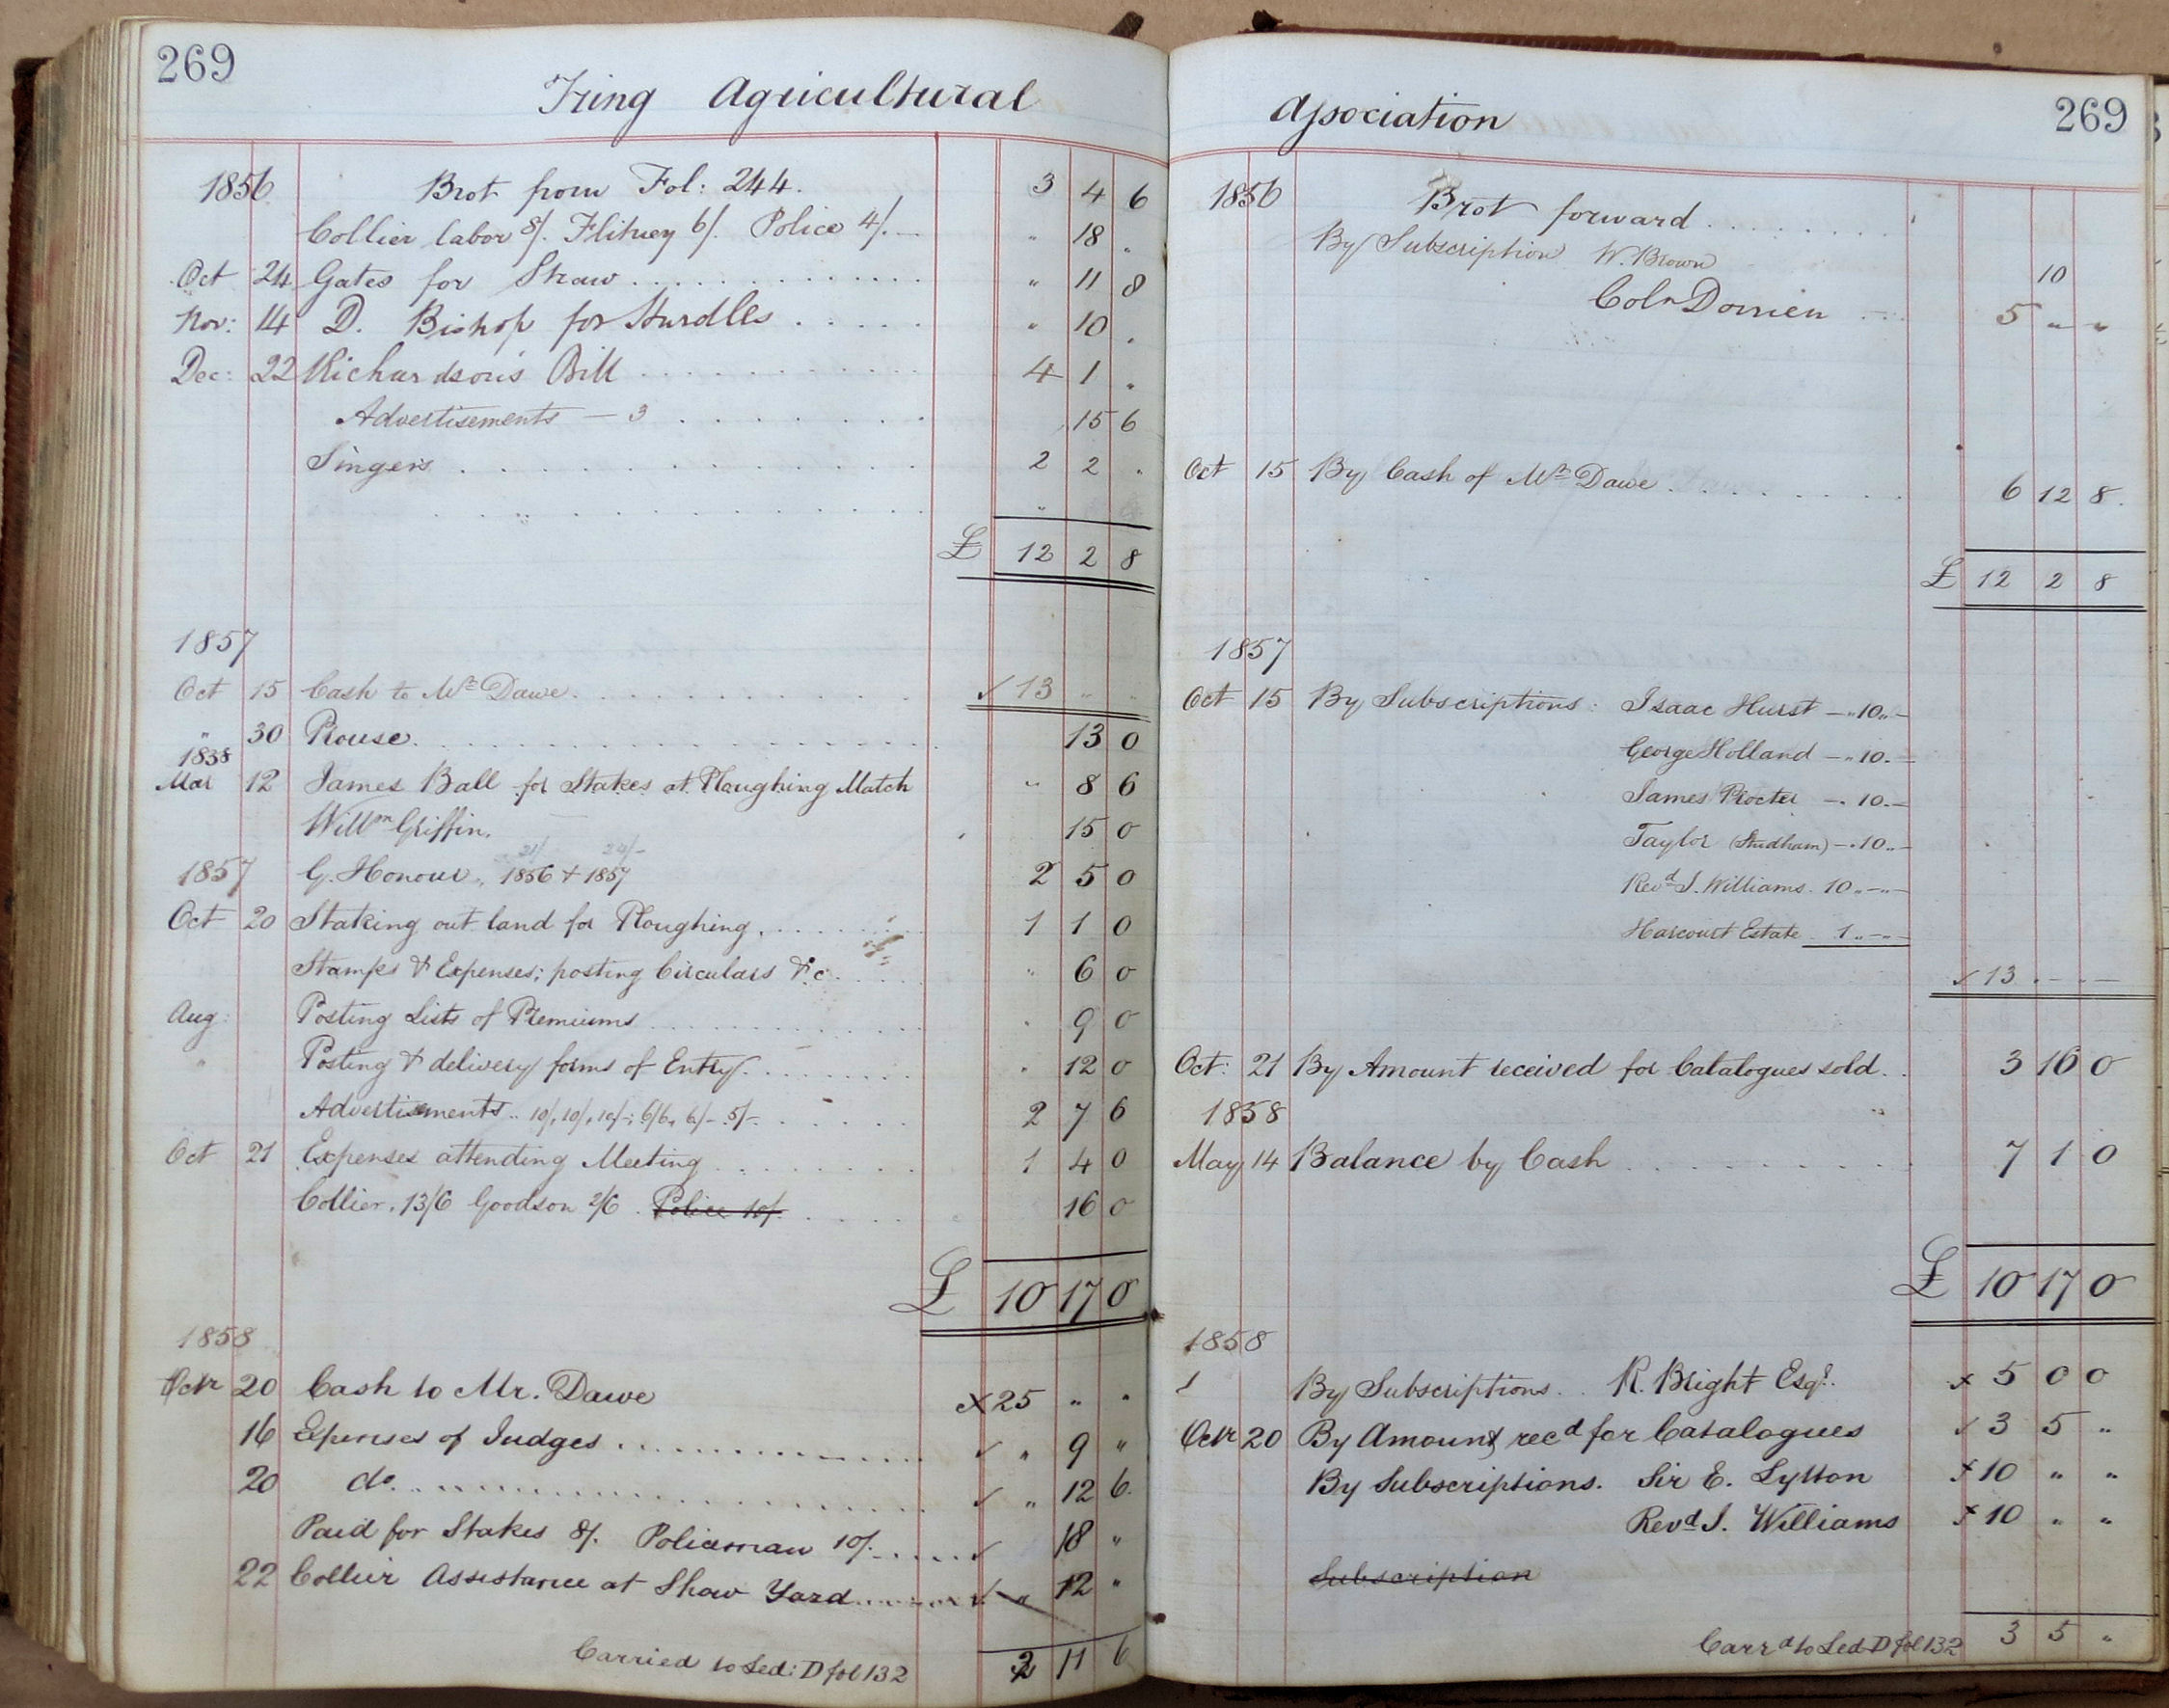 269
Tring Agricultural
1856 Brot from Fol: 244. 3 4 6
Collier labor 8/. Flitney 6/. Police 4/. — " 18 "
Oct 24 Gates for Straw . . . . " 11 8
Nov: 14 D. Bishop for Hurdles . . . . " 10 "
Dec: 22 Richardson's Bill . . . . 4 1 "
Advertisements — 3 . . . . 15 6
Singers . . . . 2 2 "
£ 12 2 8
1857
Oct 15 Cash to Mr Dawe . . . . ✓ 13 " "
" 30 Prouse . . . . 13 0
1858
Mar 12 James Ball for Stakes at Ploughing Match " 8 6
Willm Griffin. 15 0
21/ 24/-
1857 G. Honour, 1856 + 1857 2 5 0
Oct 20 Staking out land for Ploughing . . . . 1 1 0
Stamps & Expenses; posting Circulars &c . . . . " 6 0
Aug: Posting Lists of Premiums . . . . " 9 0
" Posting & delivery forms of Entry . . . . " 12 0
Advertisements .. 10/, 10/, 10/-; 6/6, 6/- 5/- . . . . 2 7 6
Oct 21 Expenses attending Meeting . . . . 1 4 0
Collier. 13/6 Goodson 2/6 . Police 10/. . . . . 16 0
£ 10 17 0
1858
Octr 20 Cash to Mr. Dawe x 25 " "
16 Expenses of Judges . . . . ✓ " 9 "
20 do. . . . . ✓ " 12 6
Paid for Stakes 8/. Policeman 10/. . . . . ✓ 18 "
22 Collier Assistance at Show Yard . . . . ✓ " 12 "
Carried to Led: D fol 132 2 11 6
Association
269
1856 Brot forward . . . .
By Subscription W. Brown 10
Coln Dorrien . . . 5 " "
Oct 15 By Cash of Mr Dawe . . . . 6 12 8
£ 12 2 8
1857
Oct 15 By Subscriptions: Isaac Hurst — " 10 " —
George Holland — " 10 . —
James Procter — . 10 . —
Taylor (Studham) — . 10 .. —
Revd J. Williams . 10 .. — .. —
Harcourt Estate . 1 .. — .. —
✓ 13 . — . —
Oct: 21 By Amount received for Catalogues sold . . 3 16 0
1858
May 14 Balance by Cash . . . . 7 1 0
£ 10 17 0
1858
By Subscriptions . . R. Bright Esqr. x 5 0 0
Octr 20 By Amount recd for Catalogues ✓ 3 5 "
By Subscriptions. Sir E. Lytton x 10 " "
Revd J. Williams x 10 " "
Subscription
Carrd to Led D fol 132 3 5 "